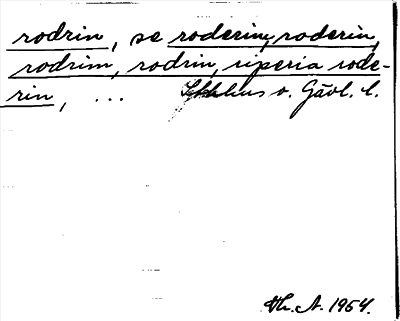 rodrin, se roderim, roderin,
rodrim, rodrin, riperia rode-
rin, ... v. Gävl. l.
A. 1954.